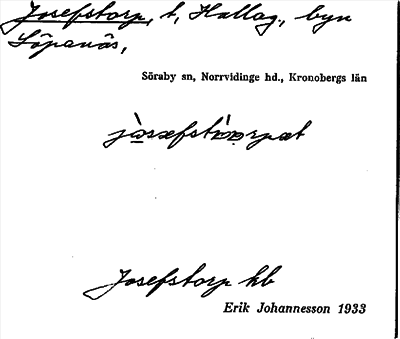 Josefstorp, t, Hallag., byn
Löpanäs,
Söraby sn, Norrvidinge hd., Kronobergs län
Josefstorp hb
Erik Johannesson 1933